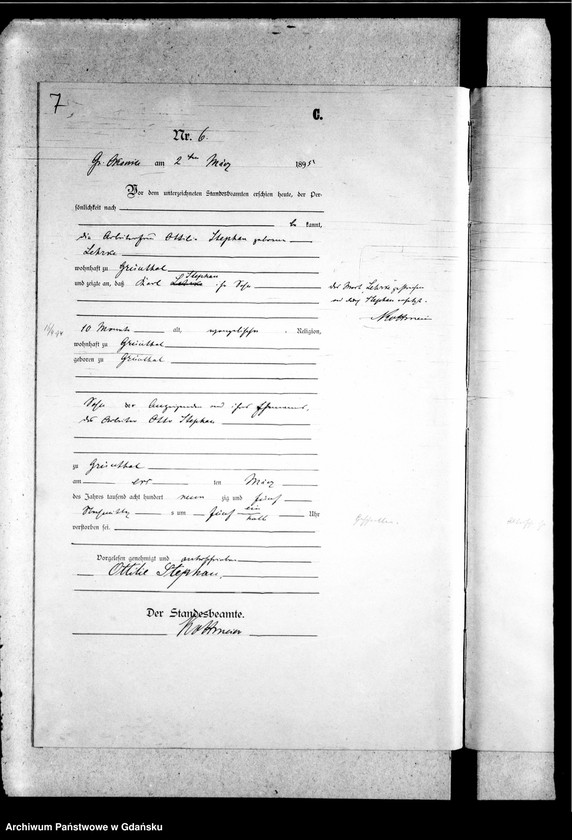 7
C.
Nr. 6.
am 2ten März 1895
Vor dem unterzeichneten Standesbeamten erschien heute, der Per-
sönlichkeit nach
be kannt,
die Arbeiterfrau Ottilie Stephan geborene
Lehrke
wohnhaft zu Grünthal
Stephan
und zeigte an, daß Karl Lehrke ihr Sohn
das Wort „Lehrke" gestrichen
und durch Stephan ersetzt.
Kottmeier
10 Monate alt, evangelischer Religion,
wohnhaft zu Grünthal
geboren zu Grünthal
Sohn der Anzeigenden und ihres Ehemannes,
des Arbeiters Otto Stephan
zu Grünthal
am ersten März
des Jahres tausend acht hundert neun zig und fünf
Nachmittags um fünf ein
halb Uhr
verstorben sei.
Vorgelesen, genehmigt und unterschrieben
Ottilie Stephan.
Der Standesbeamte.
Kottmeier
Archiwum Państwowe w Gdańsku